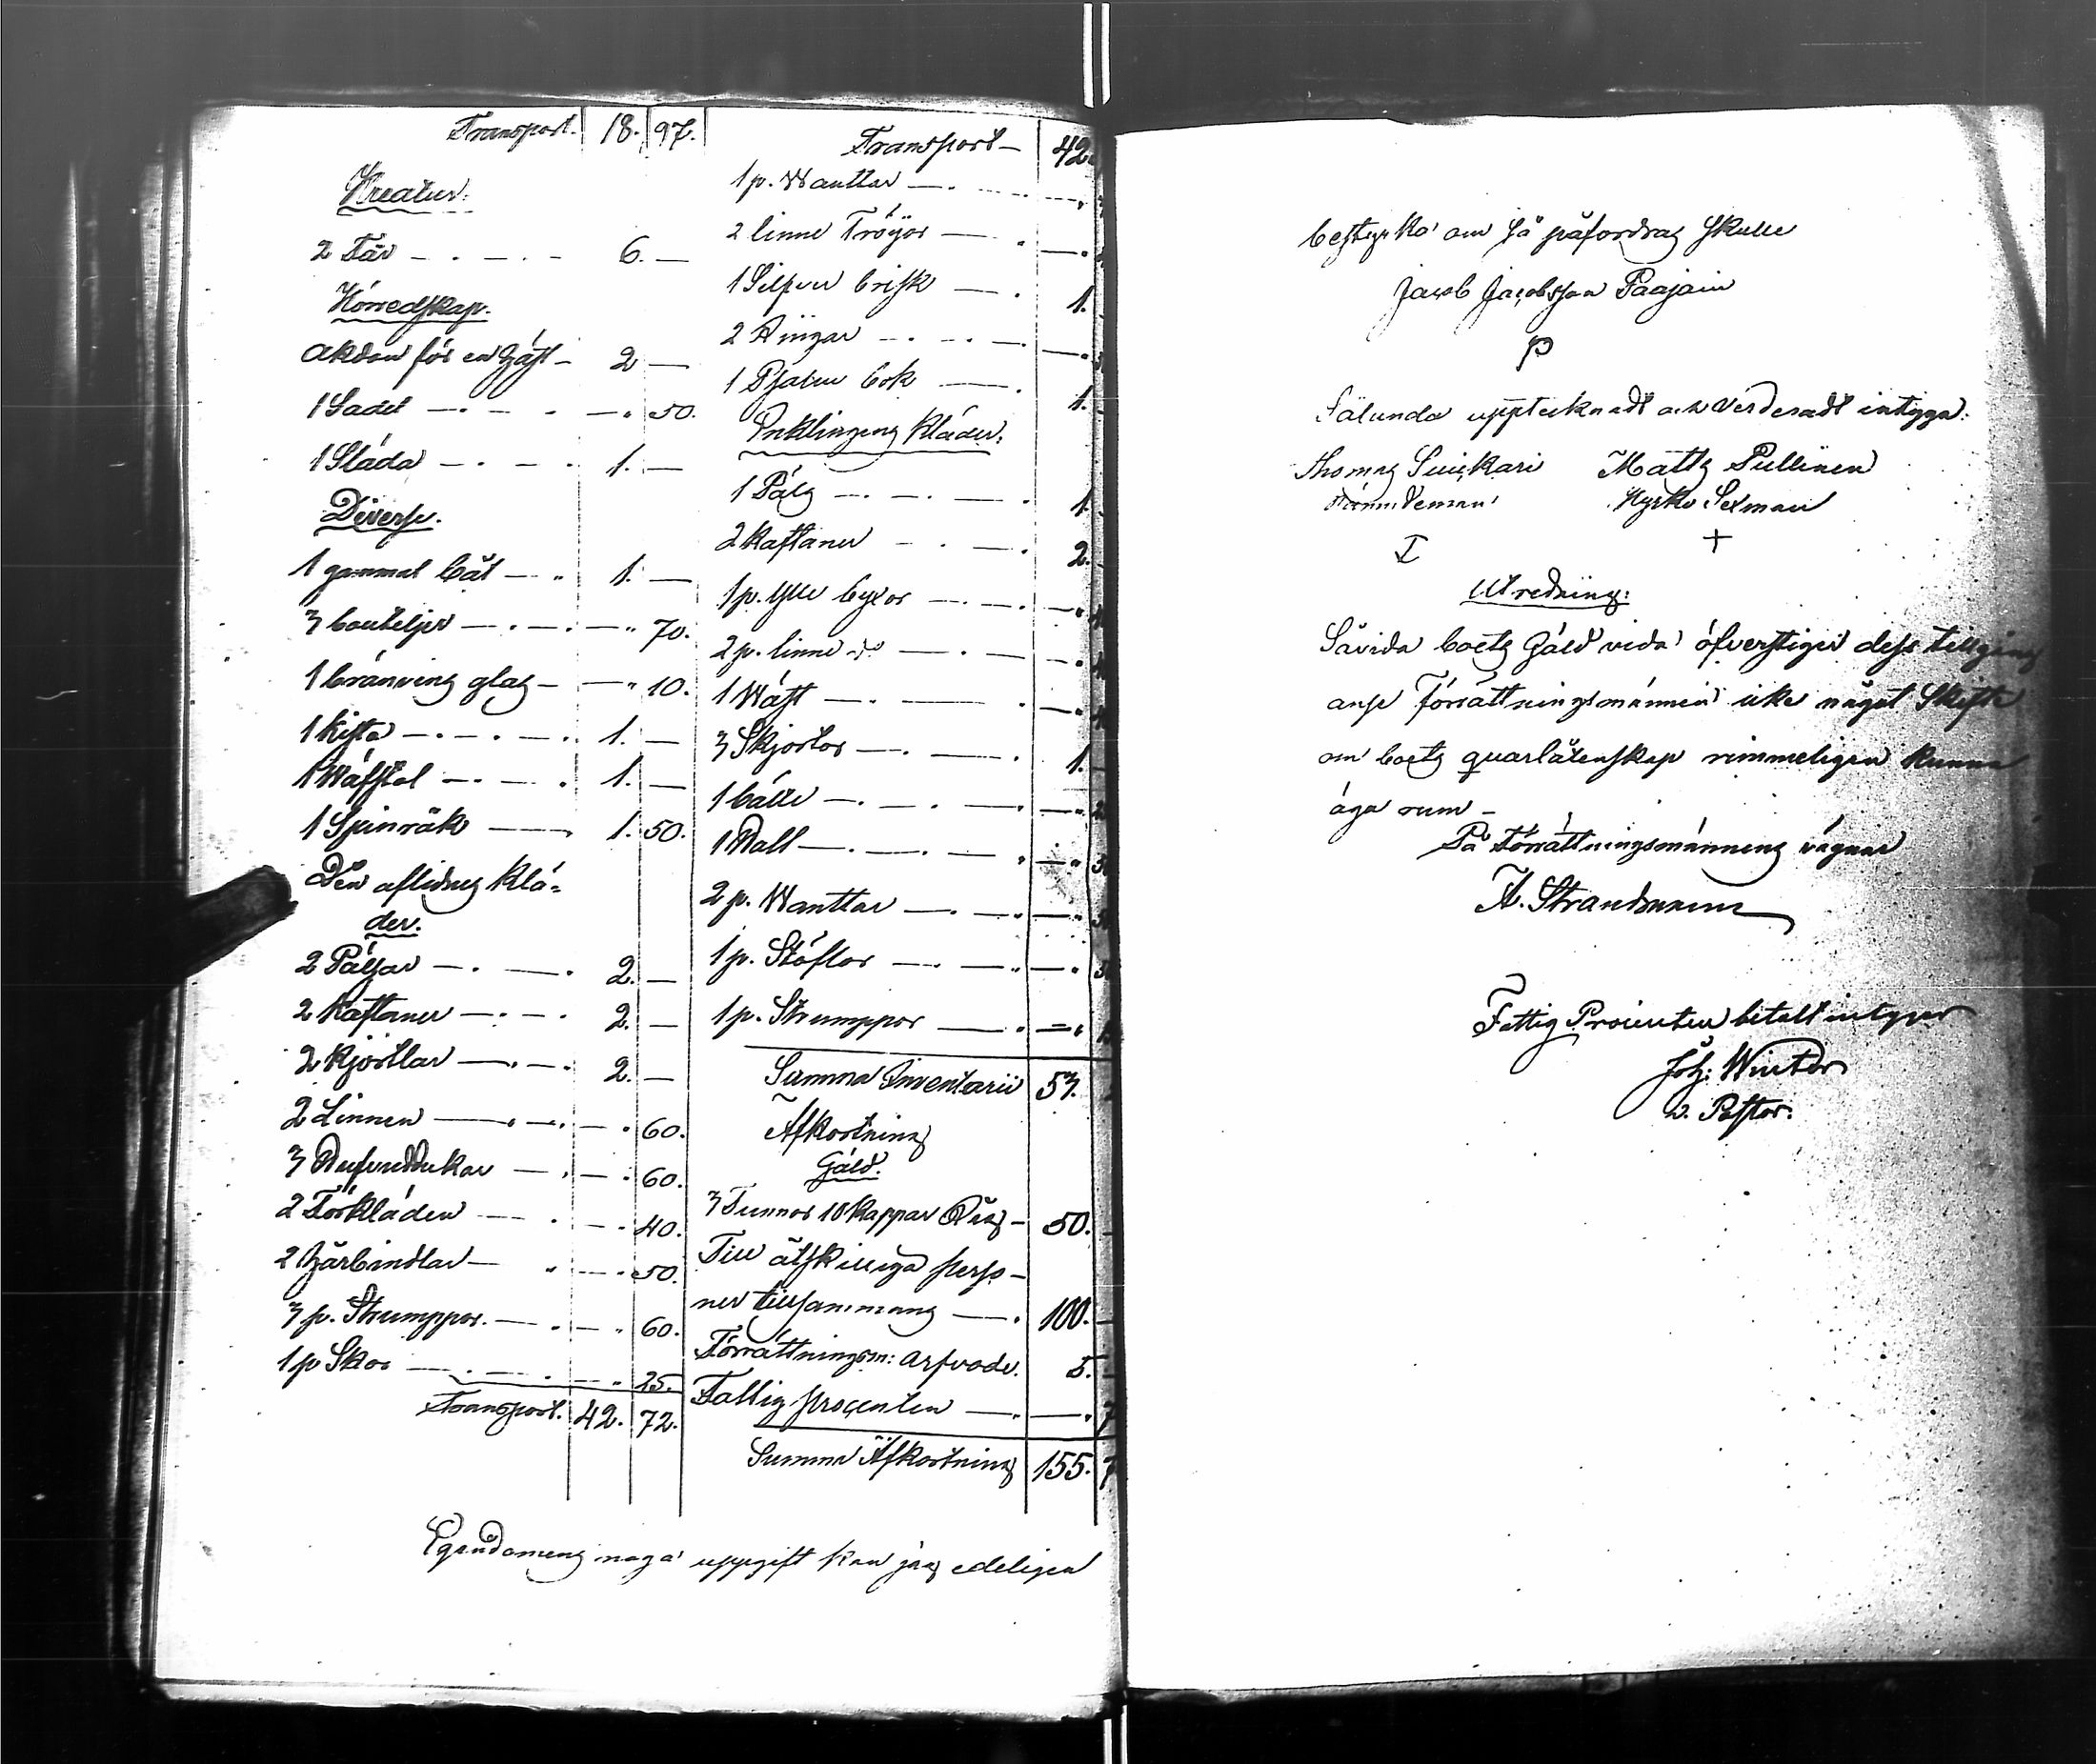 Transport. 18. 97.
Kreatur.
2 Får — . — . — 6. —
Körredskap.
Akdon för en häst — 2 —
1 Sadel — . — . — . 50.
1 Släda — . — . 1. —
Diverse.
1 gammal båt — . 1. —
3 bouteljer — . — . — . 70.
1 bränvins glas — — . 10.
1 kista — . — . — . 1. —
1 Wäfstol — . — . 1. —
1 Spinråk — . 1. 50.
Den aflidnes klä-
der.
2 Pälsar — . — . 2. —
2 kaftaner — . — . 2. —
2 kjortlar — . — . 2. —
2 Linnen — . — . — . 60.
3 Hufvuddukar — . — . 60.
2 Förkläden — . — . 40.
2 Hårbindlar — . — . 50.
3 p. Strumppor. — . — . 60.
1 p Skor — . — . 25.
Transport. 42. 72.
Transport — 42.
1 p. Wanttar — .
2 linne Tröÿor — . — .
1 Silfver brisk — . 1.
2 Ringar — . — . — .
1 Psalm bok — . 1.
Enklingens kläder.
1 Päls — . — . — . 1.
2 kaftaner — . — . 2.
1 p. ylle byxor — . — . — .
2 p. linne do — . — . — .
1 Wäst — . — . — .
3 Skjortor — . — . 1.
1 bälte — . — . — .
1 Hatt — . — . — . — .
2 p. Wanttar — . — . — .
1 p. Stöflor — . — . — .
1 p. Strumppor — . — .
Summa Inventarii 53.
Afkortning
Gäld.
3 Tunnor 10 kappar Råg — 50.
Till åtskilliga perso-
ner tillsammans — . 100.
Förrättningsm: arfvode. 5.
Fattig procenten — . — . 7
Summa Afkortning 155. 7
Egendomens noga uppgift kan jag edeligen
bestyrka om så påfordras skulle
Jacob Jacobsson Paajain
P
Sålunda upptecknadt och värderadt intyga:
Thomas Matts Pullinen
Kyrko Sexman
I +
Utredning:
Såvida boets Gäld vida öfverstiger dess tillgång
anse Förrättningsmännen icke något Skifte
om boets quarlåtenskap rimmeligen kunna
äga rum —
På Förrättningsmännens vägnar
A. Strandmann
Fattig Procenten betalt intygar
Joh: Winter
v. Pastor.